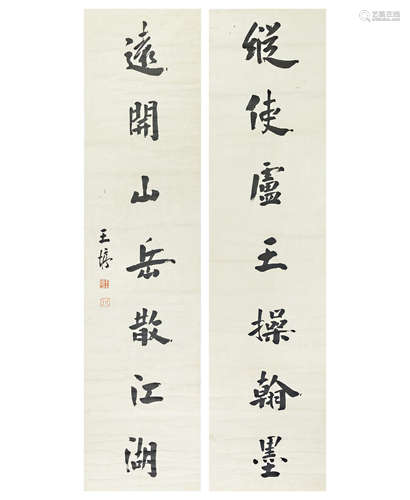 縱使盧王操翰墨
遠開山岳散江湖
王